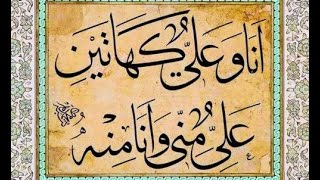 اَنَا وَ عَلِیٌّ كَهَاتَیْن
عَلِیٌّ مِنّی وَ اَنَا مِنْهُ